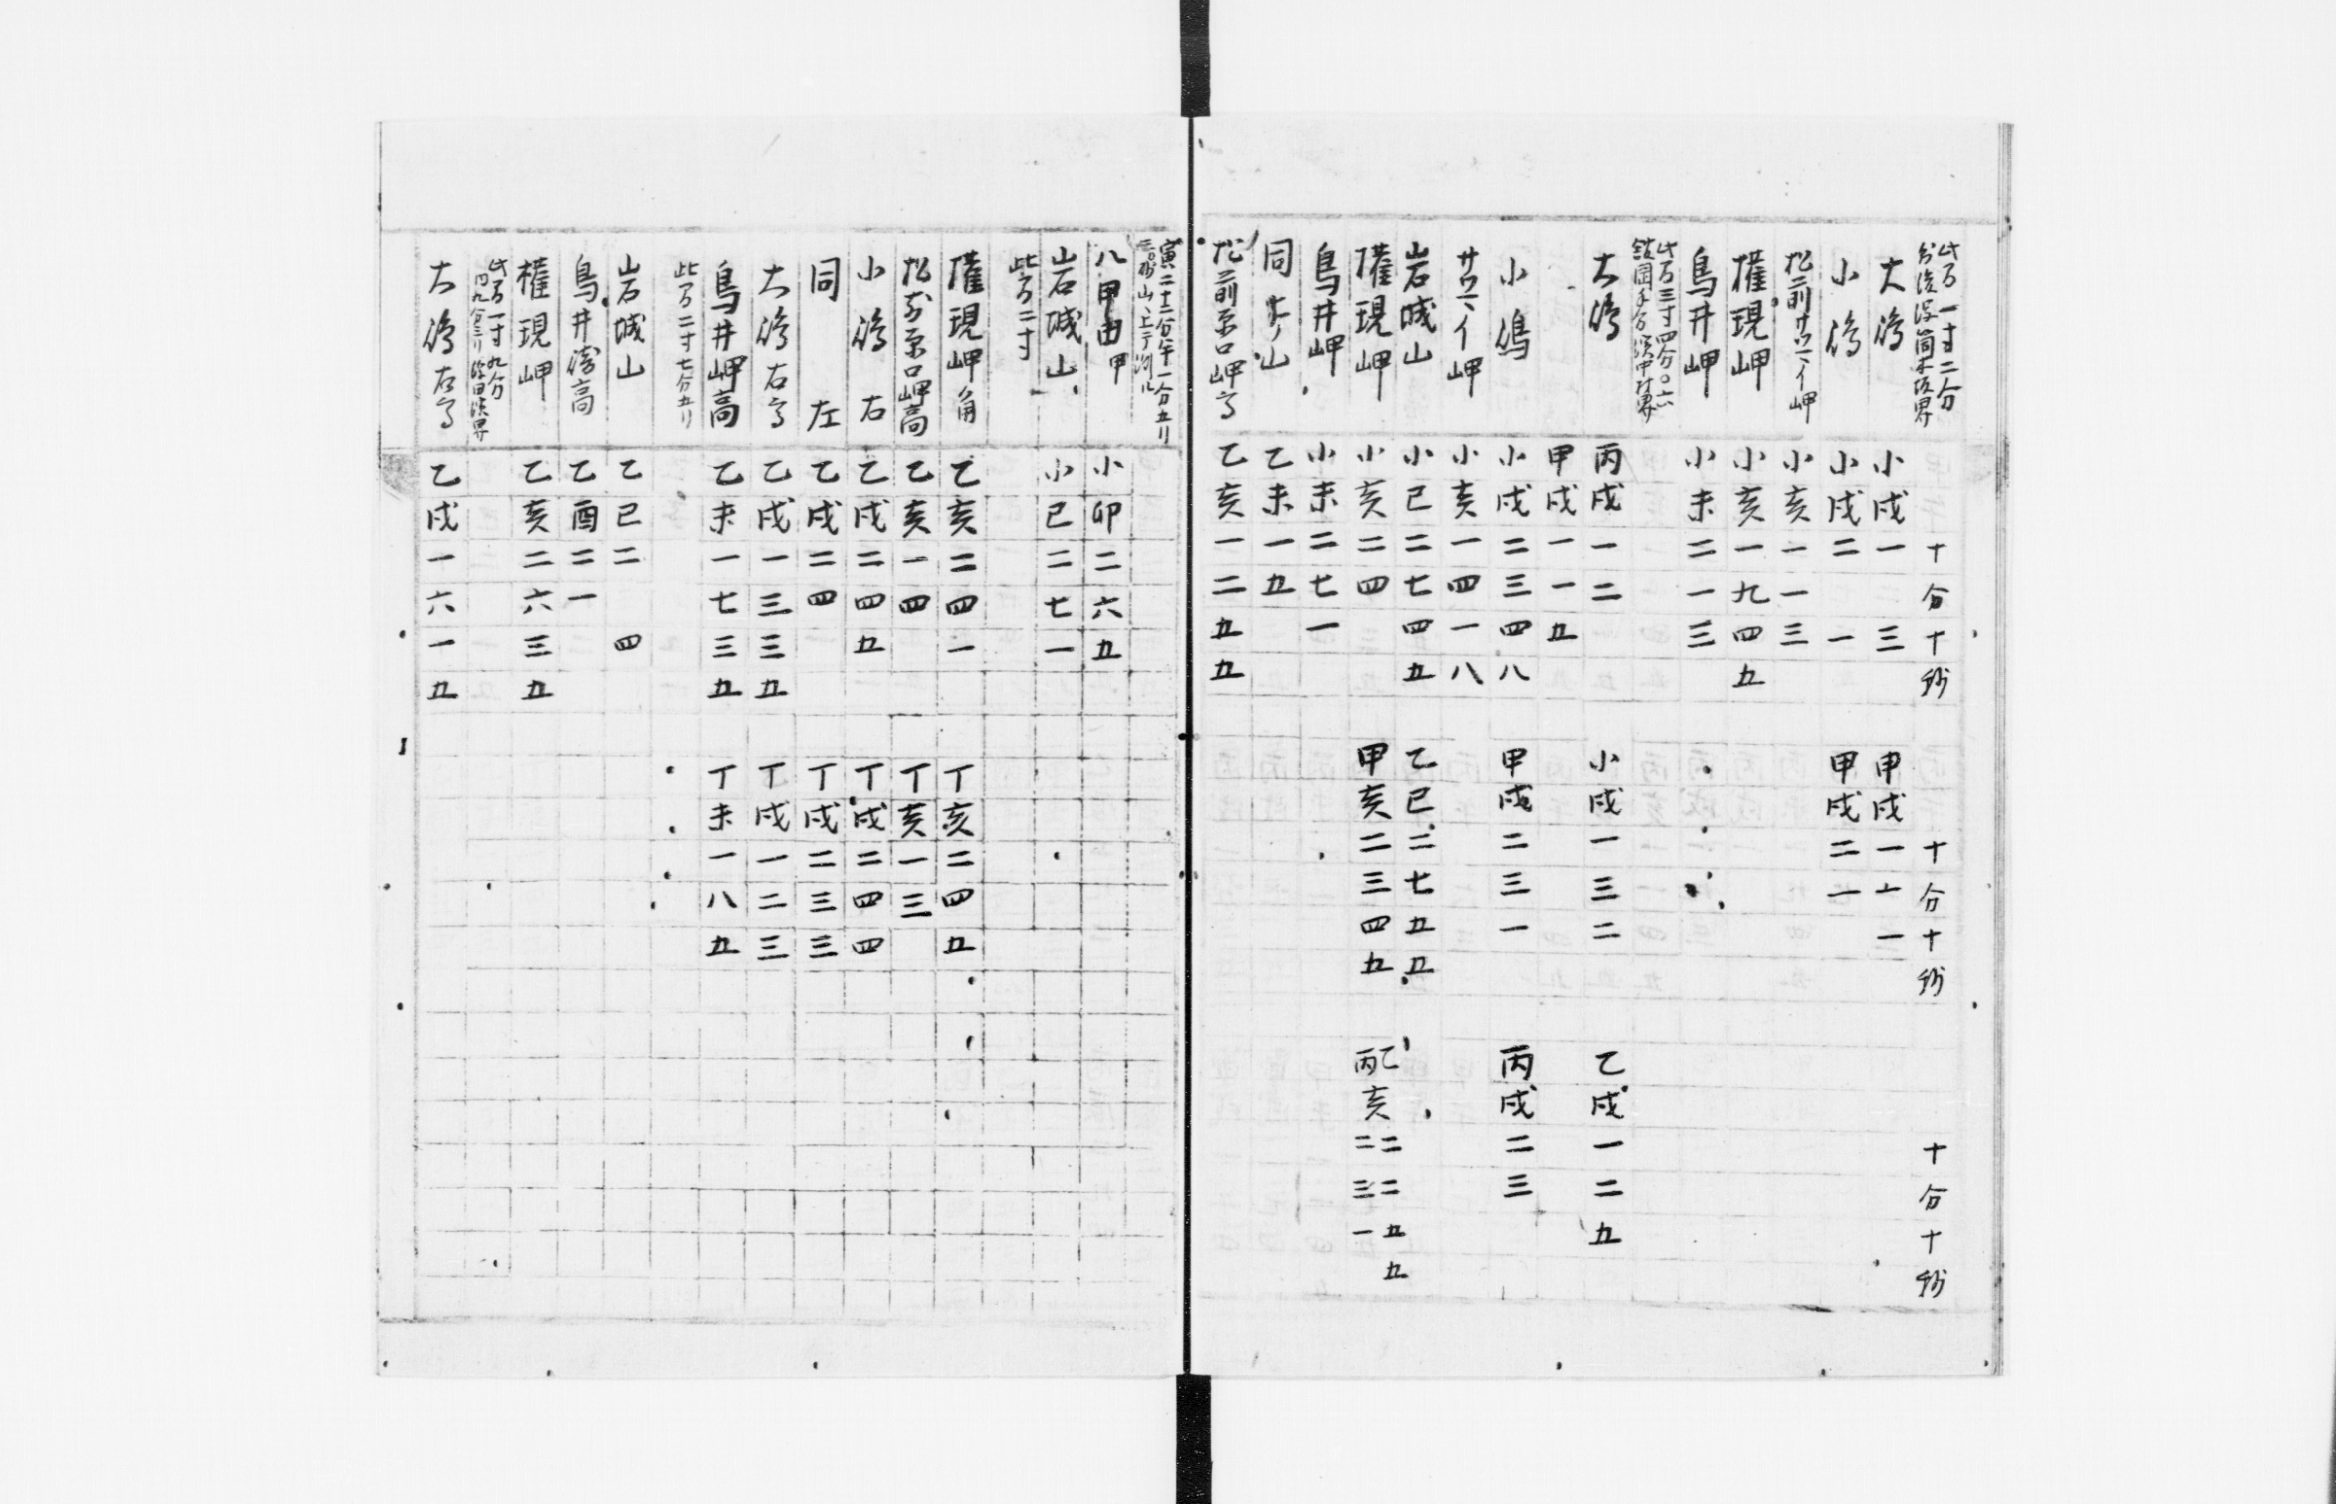 此方一寸二分
十分十秒 十分十秒 十分十秒
大嶋 小戌一 三 甲戌一一一
小嶋 小戌二 一 甲戌二一
松前サウヘイ岬 小亥一一三
権現岬 小亥一九四五
鳥井岬 小未二一三
此方三寸四分〇六
大嶋 丙戌一二 小戌一三二 乙戌一二五
甲戌一一五
小嶋 小戌二三四八 甲戌二三一 丙戌二三
サウヘイ岬 小亥一四一八
岩城山 小巳二七四五 乙巳二七五五
権現岬 小亥二四 甲亥二三四五 乙亥二二五五 丙二三一
鳥井岬 小未二七一
同 山 乙未一五
松前 口岬 乙亥一二五五
寅二十二分午一分五リ
八甲田 甲 小卯二六五
岩城山 小巳二七一
此方二寸
権現岬角 乙亥二四一 丁亥二四五
松前 口岬高 乙亥一四 丁亥一三
小嶋右 乙戌二四五 丁戌二四四
同 左 乙戌二四 丁戌二三三
大嶋右 乙戌一三三五 丁戌一二三
鳥井岬高 乙未一七三五 丁未一八五
此方二寸七分五リ
岩城山 乙巳二 四
鳥井 高 乙酉二一
権現岬 乙亥二六三五
此方一寸九分
大嶋右 乙戌一六一五